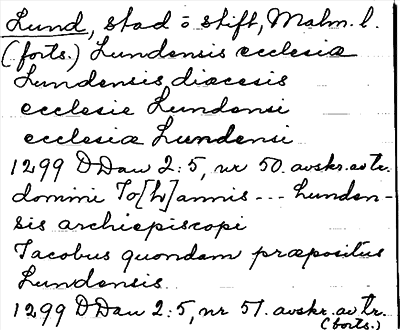 Lund, stad o stift, Malm. l.
(forts.) Lundensis ecclesia
Lundensis diocesis
ecclesie Lundensi
ecclesiæ Lundensi
1299 DDan 2:5, nr 50. avskr. av tr.
domini Jo[h]annis --- Lunden-
sis archiepiscopi
Jacobus quondam præpositus
Lundensis
1299 DDan 2:5, nr 51. avskr. av tr.
(forts.)